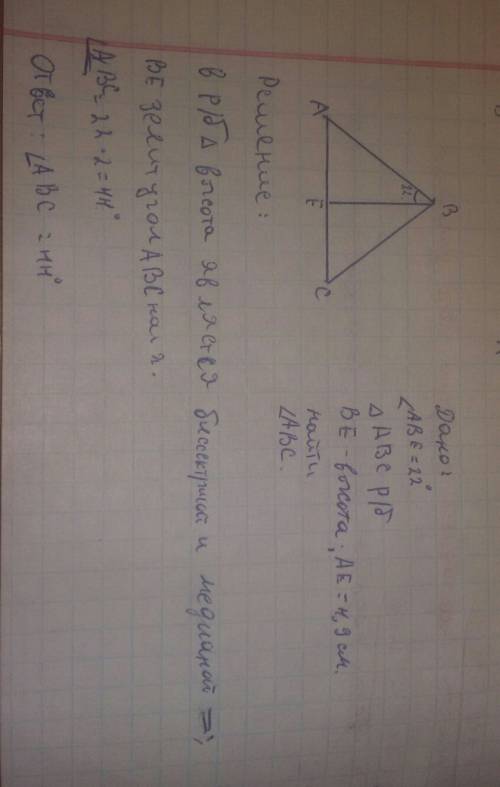 Дано:
∠ABE = 22°
△ ABC р/б
BE - высота; AE = 4,9 см.
найти
∠ABC.
B
22
A
E
C
Решение:
В р/б △ высота является биссектриой и медианой =>
BE делит угол ABC на 2.
∠ABC = 22 · 2 = 44°
Ответ: ∠ABC = 44°